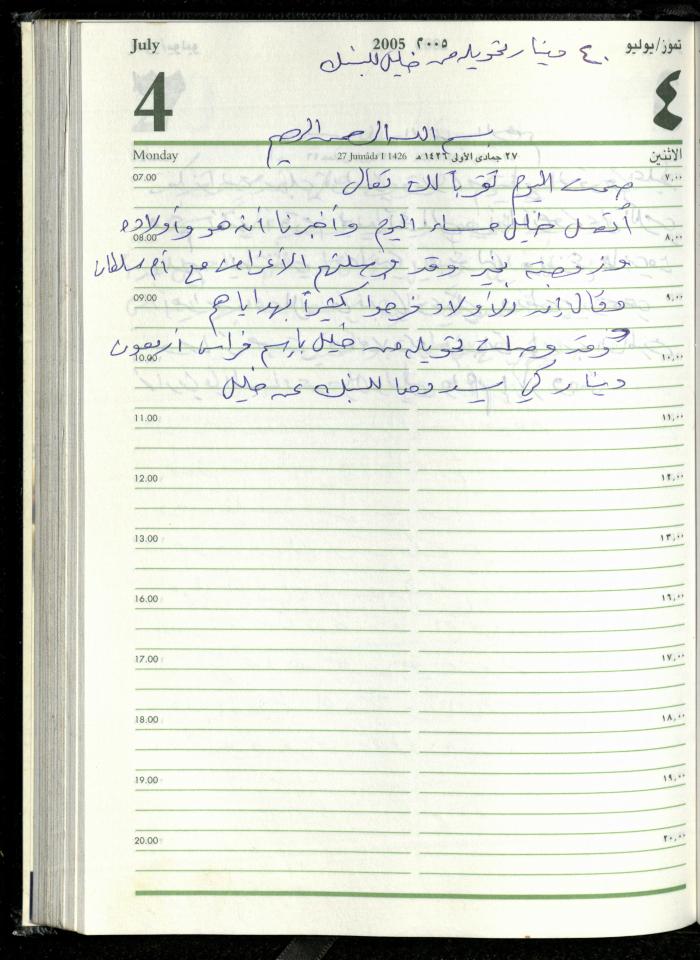 July 2005 ٢٠٠٥ تموز/يوليو
٤٠ دينار تحويله من خليل للبنك
4 ٤
بسم الله الرحمن الرحيم
Monday 27 Jumada I 1426 ٢٧ جمادى الأولى ١٤٢٦ هـ الاثنين
07.00 ٧,٠٠
صمت اليوم تقرباً لله تعالى
أتصل خليل مساء اليوم وأخبرنا أنه هو وأولاده
08.00 ٨,٠٠
وزوجته بخير وقد وصلتهم الأغراض مع أم سلطان
09.00 ٩,٠٠
وقال إن الأولاد فرحوا كثيراً بهداياهم
وقد وصلت تحويله من خليل بإسم فراس أربعون
10.00 ١٠,٠٠
دينار كي للبنك عن خليل
11.00 ١١,٠٠
12.00 ١٢,٠٠
13.00 ١٣,٠٠
16.00 ١٦,٠٠
17.00 ١٧,٠٠
18.00 ١٨,٠٠
19.00 ١٩,٠٠
20.00 ٢٠,٠٠